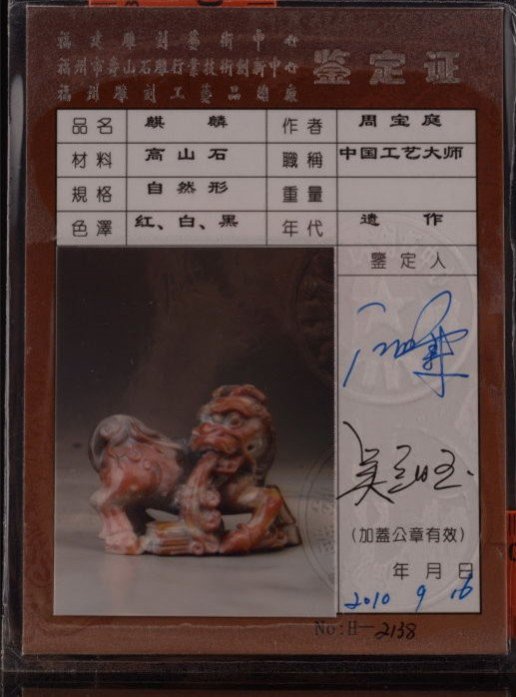 福建雕刻藝術中心
福州市壽山石雕行業技術創新中心
福州雕刻工藝品總廠
鉴定证
品名 麒麟 作者 周宝庭
材料 高山石 職稱 中国工艺大师
規格 自然形 重量
色澤 红、白、黑 年代 遗作
鑒定人
(加蓋公章有效)
年月日
2010 9 16
No:H—2138